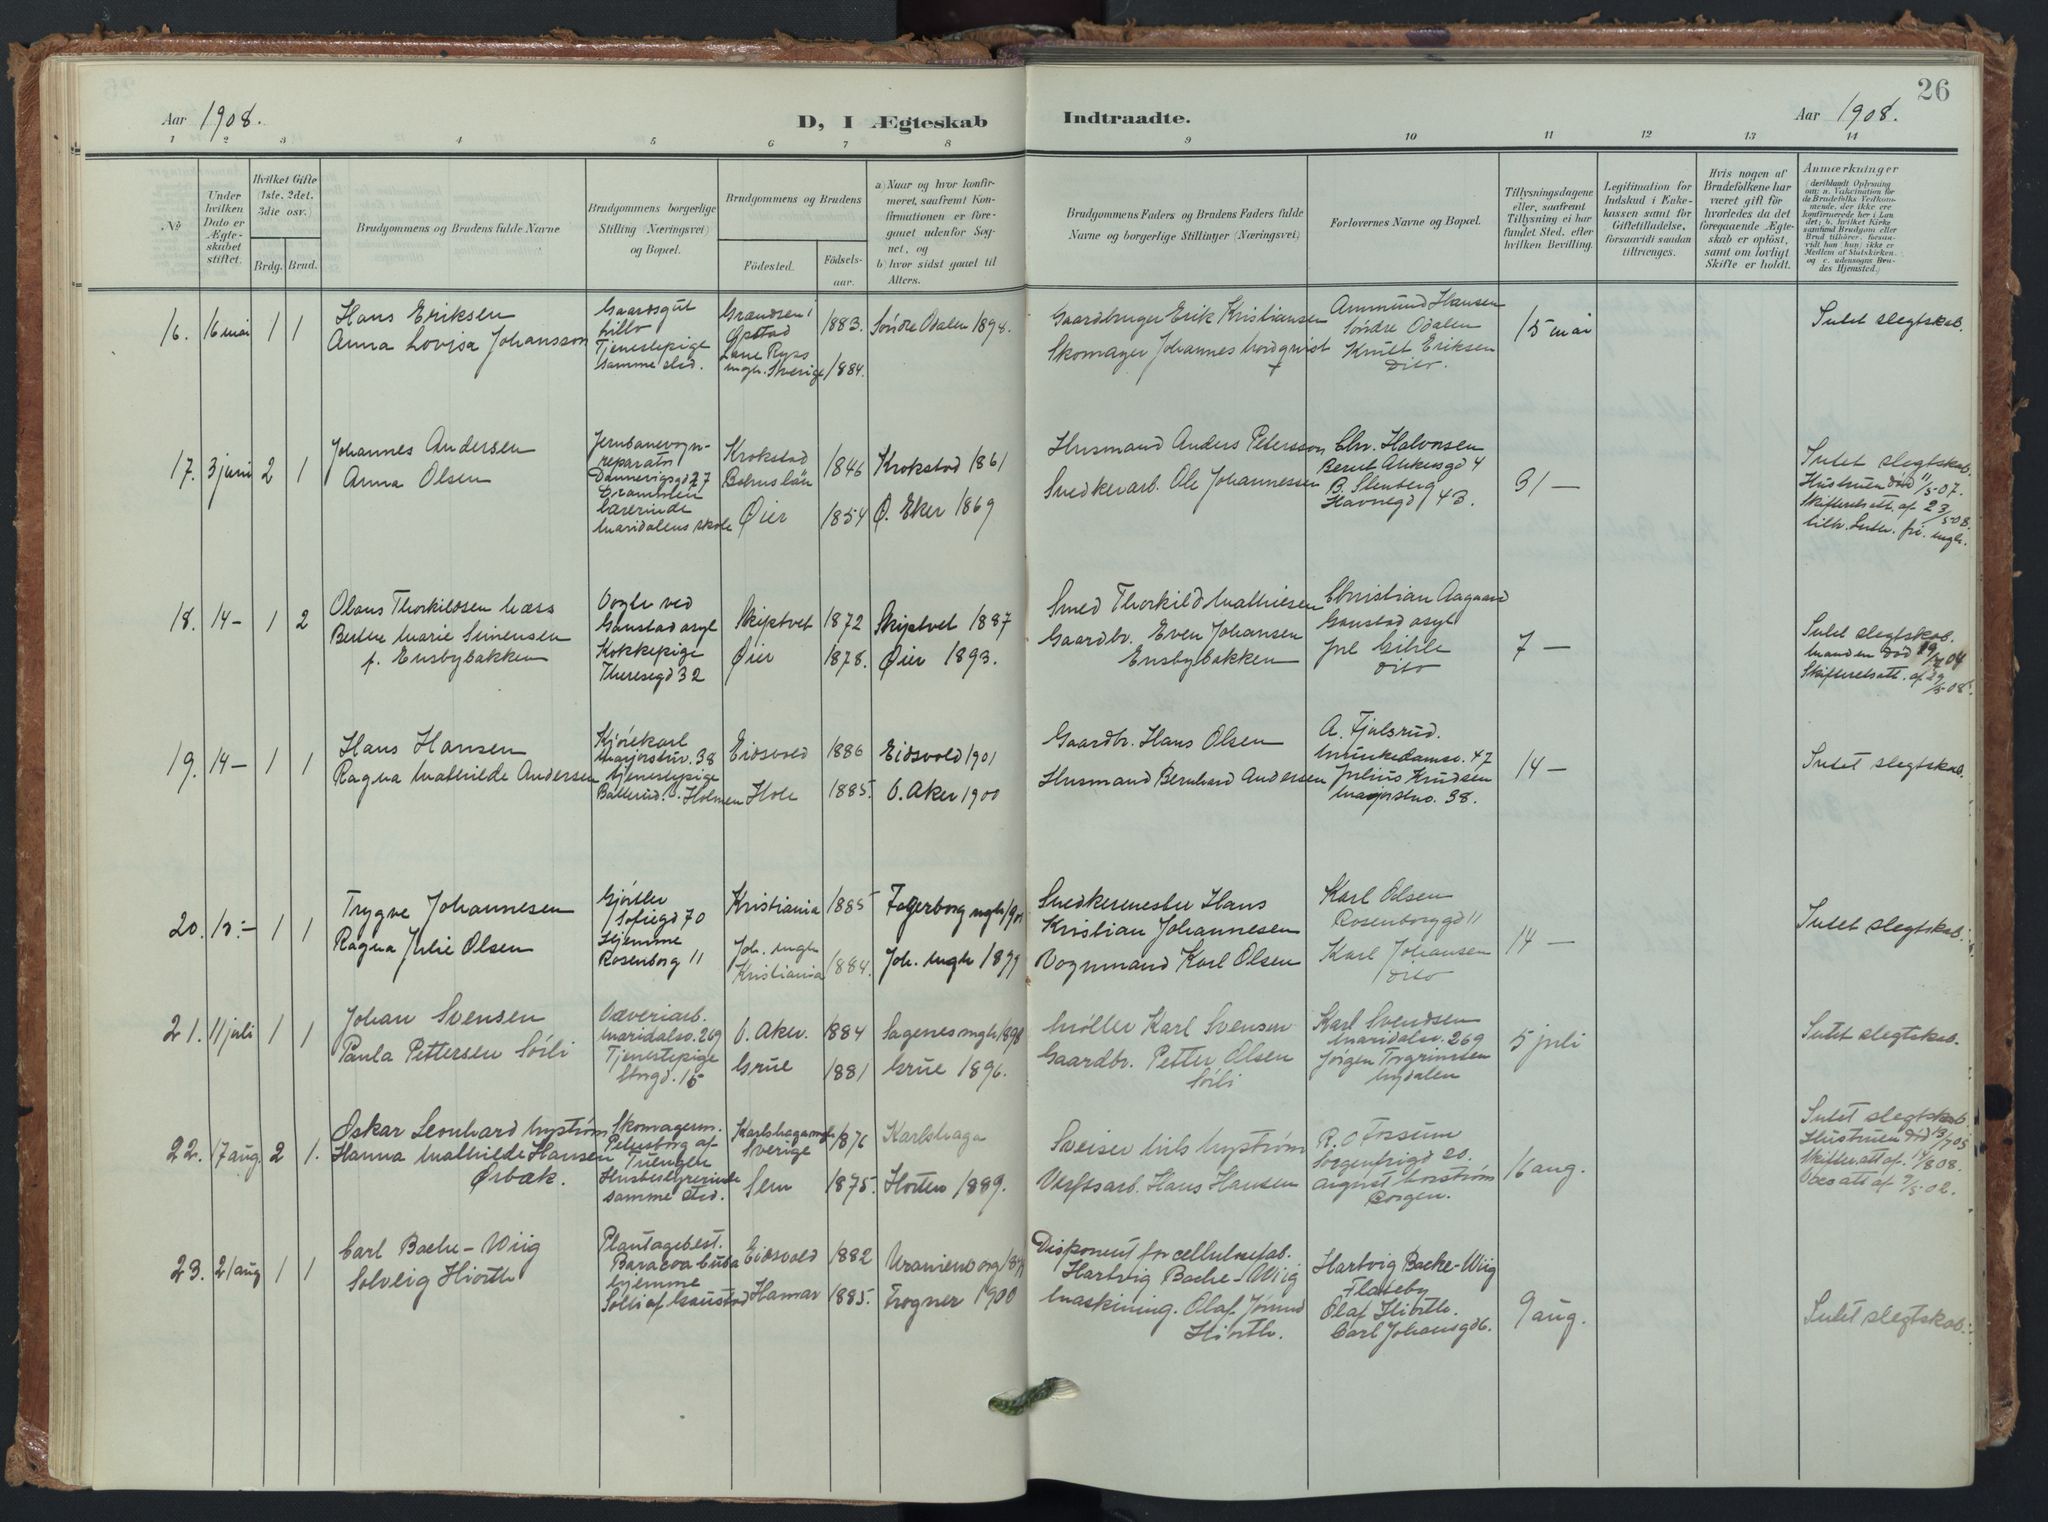 26
Aar 1908.
D, I Ægteskab
Indtraadte.
Aar 1908.
1 2 3 4 5 6 7 8 9 10 11 12 13 14
No.
Under hvilken Dato er Ægteskabet stiftet.
Hvilket Gifte (1ste, 2det, 3die osv.)
Brdg. Brud.
Brudgommens og Brudens fulde Navne
Brudgommens borgerlige Stilling (Næringsvei) og Bopæl.
Brudgommens og Brudens
Fødested.
Fødselsaar.
a) Naar og hvor konfirmeret, saafremt Konfirmationen er foregaaet udenfor Sognet, og
b) hvor sidst gaaet til Alters.
Brudgommens Faders og Brudens Faders fulde Navne og borgerlige Stillinger (Næringsvei)
Forlovernes Navne og Bopæl.
Tillysningsdagene eller, saafremt Tillysning ei har fundet Sted, efter hvilken Bevilling.
Legitimation for Indskud i Enkekassen samt for Giftetilladelse, forsaavidt saadan tiltrænges.
Hvis nogen af Brudefolkene har været gift før hvorledes da det foregaaende Ægteskab er opløst, samt om lovligt Skifte er holdt.
Anmerkninger
16. 16 mai 1 1
Hans Eriksen
Anna Lovisa Johansson
Gaardsgut
Lillo
Tjenestepige
samme sted.
Opstad
1883.
Søndre Odalen 1898.
Sverige 1884.
Gaardbruger Erik Kristiansen
Skomager Johannes Nordqvist
Ammund Hansen
Søndre Odalen
Knut Eriksen
Dito.
15 mai
Intet slegtskab.
17. 3 juni 2 1
Johannes Andersen
Anna Olsen
Jernbanevogn-
reparatør
Lærerinde
Maridalens skole
Krokstad
Bohuslän
1846
Krokstad 1861
Øier 1854 Ø. Eker 1869
Husmand Anders Petersson
Snedkerarb. Ole Johannessen
Chr. Halvorsen
Bernt Ankersgd 4
B. Stenberg
Havnegd 43.
31 —
Intet slegtskab.
Hustruen død 11/5 07.
Skifteretsatt. af 23/5 08.
18. 14 — 1 2
Olaus Thorkildsen Næss
Berthe Marie Simensen
f. Ensbybakken
Vogter ved
Gaustad asyl
Kokkepige
Theresegd 32
Skiptvet 1872 Skiptvet 1887
Øier 1878. Øier 1893.
Smed Thorkild Mathiesen
Gaardbr. Even Johansen
Ensbybakken
Christian Aagaard
Gaustad asyl
Dito
7 —
Intet slegtskab.
Manden død
Skifteretsatt. af 29/5 08.
19. 14 — 1 1
Hans Hansen
Ragna Mathilde Andersen
Kjørekarl
Majorstuv. 38
Tjenestepige
Holmen
Eidsvold 1886 Eidsvold 1901
Hole 1885. V. Aker 1900
Gaardbr. Hans Olsen
Husmand Bernhard Andersen
A. Fjalsrud.
Munkedamsv. 47
Julius Knudsen
Majorstuv. 38.
14 —
Intet slegtskab.
20. 1 1
Trygve Johannesen
Ragna Julie Olsen
Gjørtler
Sofiegd 70
Hjemme
Rosenborg 11
Kristiania 1885 Fagerborg mgh
Joh. mgh
Kristiania 1884. Joh. mgh 1899
Snedkermester Hans
Kristian Johannesen
Vognmand Karl Olsen
Karl Olsen
Rosenborggd 11
Karl Johansen
Dito
14 —
Intet slegtskab.
21. 11 juli 1 1
Johan Svensen
Paula Pettersen Sörli
Væveriarb.
Maridalsv. 269
Tjenestepige
Storgd. 15
V. Aker. 1884 Sagenes mgh 1898
Grue 1881 Grue 1896.
Møller Karl Svensen
Gaardbr. Petter Olsen
Sörli
Karl Svendsen
Maridalsv. 269
Jørgen Torgrimsen
Nydalen
5 juli
Intet slegtskab.
22. 17 aug. 2 1.
Oskar Leonhard Nystrøm
Hanna Mathilde Hansen
Ørbæk.
Skomagerm.
Petersborg af
Tuengen
Husbestyrerinde
samme sted.
Karlskaga mgh
Sverige 1876 Karlskaga
Sem 1875. Horten 1889.
Sveiser Nils Nystrøm
Verftsarb. Hans Hansen
R. O Fossum
Sorgenfrigd 20.
August Norstrøm
Borgen.
16 aug.
Intet slegtskab
Hustruen død
Skifteratt af 14/8 08.
23. 21 aug 1 1
Carl Bache-Wiig
Solveig Hiorth
Plantagebest.
Baracoa Cuba
hjemme
Solli af Gaustad
Eidsvold 1882 Uranienborg
Hamar 1885. Frogner 1900
Disponent for cellulosefab.
Hartvig Bache-Wiig
Maskining. Olaf
Hiorth.
Hartvig Bache-Wiig
Flateby
Olaf Hiorth.
Carl Johansgd
9 aug.
Intet slegtskab.